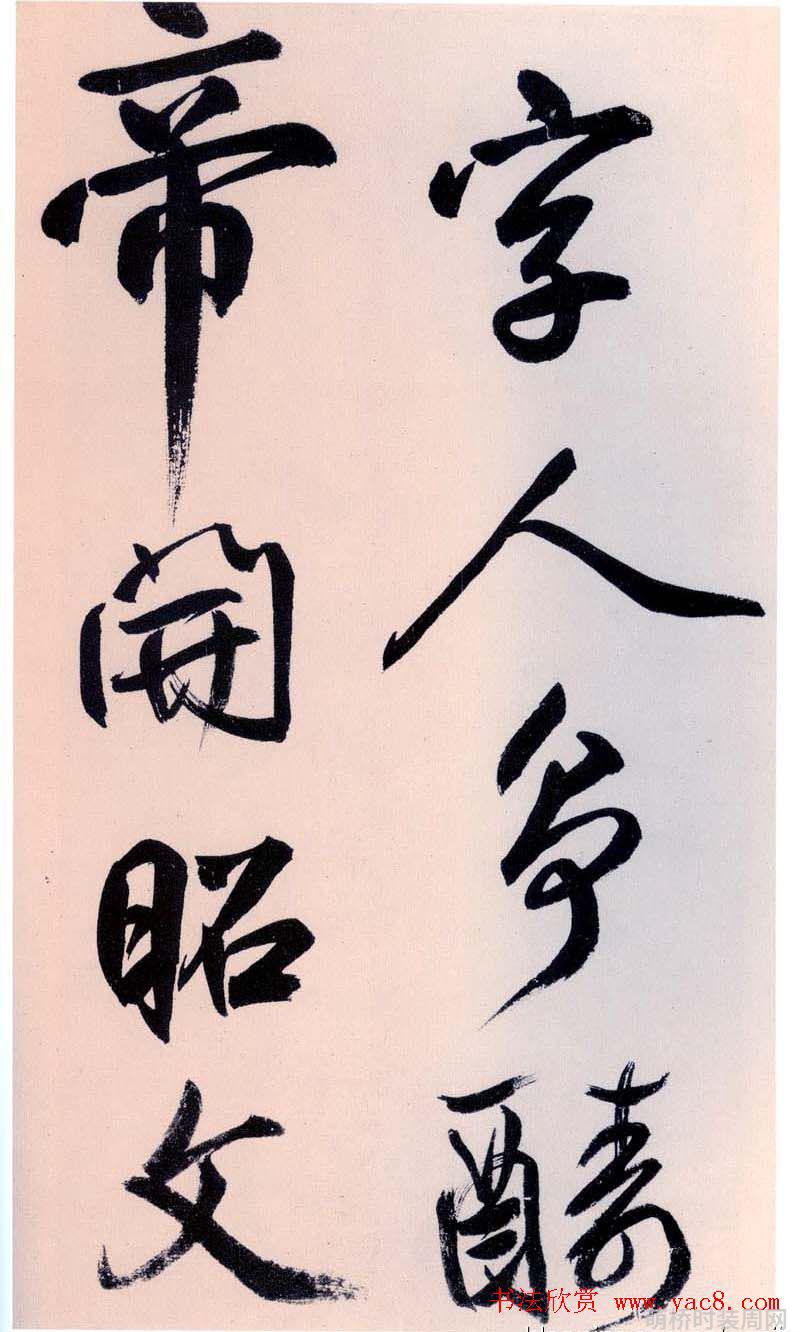 字人争酬
帝開昭文
书法欣赏 www.yac8.com
萌桥时装周网